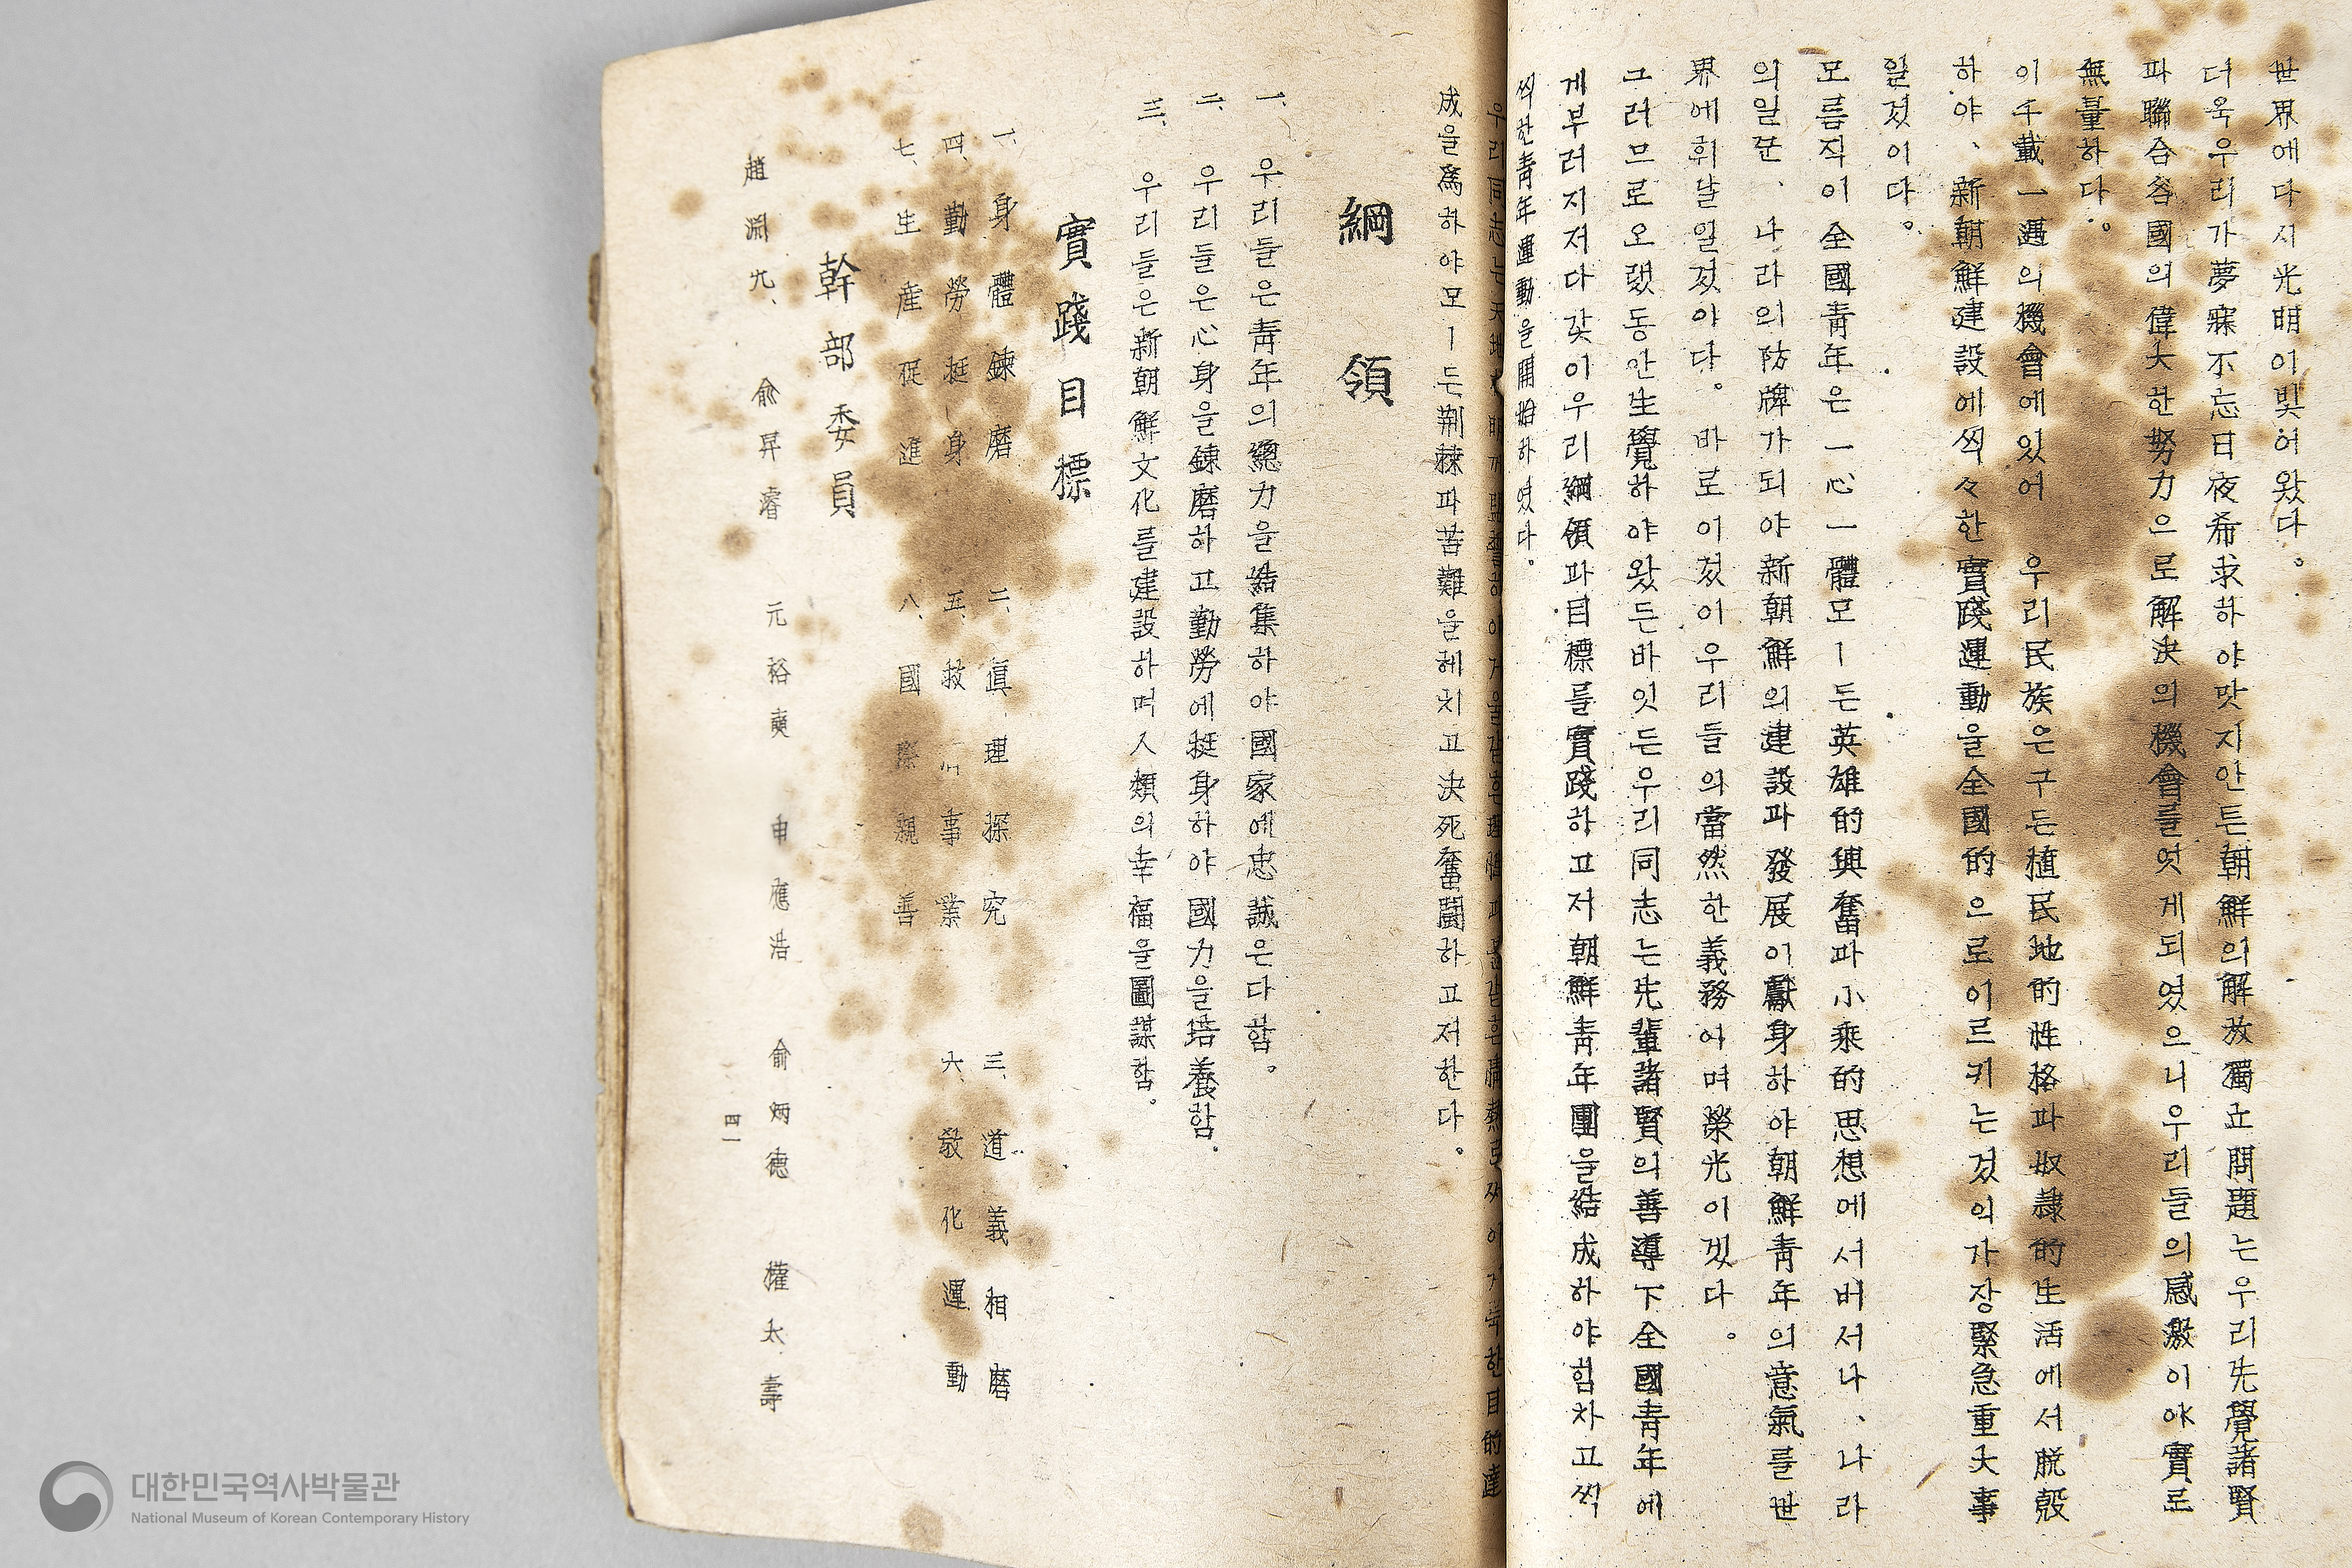 世界에다시光明이빛어왔다。
더욱우리가夢寐不忘日夜希求하야맛지안튼朝鮮의解放獨立問題는우리先覺諸賢
파聯合各國의偉大한努力으로解決의機會를엇게되였으니우리들의感激이야實로
無量하다。
이千載一遇의機會에있어 우리民族은구든植民地的性格파奴隷的生活에서脫殼
하야、新朝鮮建設에씩々한實踐運動을全國的으로이르키는것의가장緊急重大事
일것이다。
모름직이全國靑年은一心一體모ー든英雄的興奮파小乘的思想에서버서나、나라
의일꾼、나라의防牌가되야新朝鮮의建設파發展이獻身하야朝鮮靑年의意氣를世
界에휘날일것아다。바로이것이우리들의當然한義務여며榮光이겠다。
그러므로오랬동안生覺하야왔든바잇든우리同志는先輩諸賢의善導下全國靑年에
게부러지저다갖이우리綱領파目標를實踐하고저朝鮮靑年團을結成하야힘차고씩
씩한靑年運動을開始하였다。
우리同志는天地
목한目的達
成을爲하야모ー든荊棘파苦難을헤치고決死奮鬪하고저한다。
綱領
一、우리들은靑年의總力을結集하야國家에忠誠은다함。
二、우리들은心身을鍊磨하고勤勞에挺身하야國力을培養함。
三、우리들은新朝鮮文化를建設하며人類의幸福을圖謀함。
實踐目標
一、身體鍊磨 二、眞理探究 三、道義相磨
四、勤勞挺身 五、救 事業 六、敎化運動
七、生産促進 八、國際親善
幹部委員
趙淵九、 俞昇睿 元裕奭 申應浩 俞炳德 權太壽
四一
대한민국역사박물관
National Museum of Korean Contemporary History